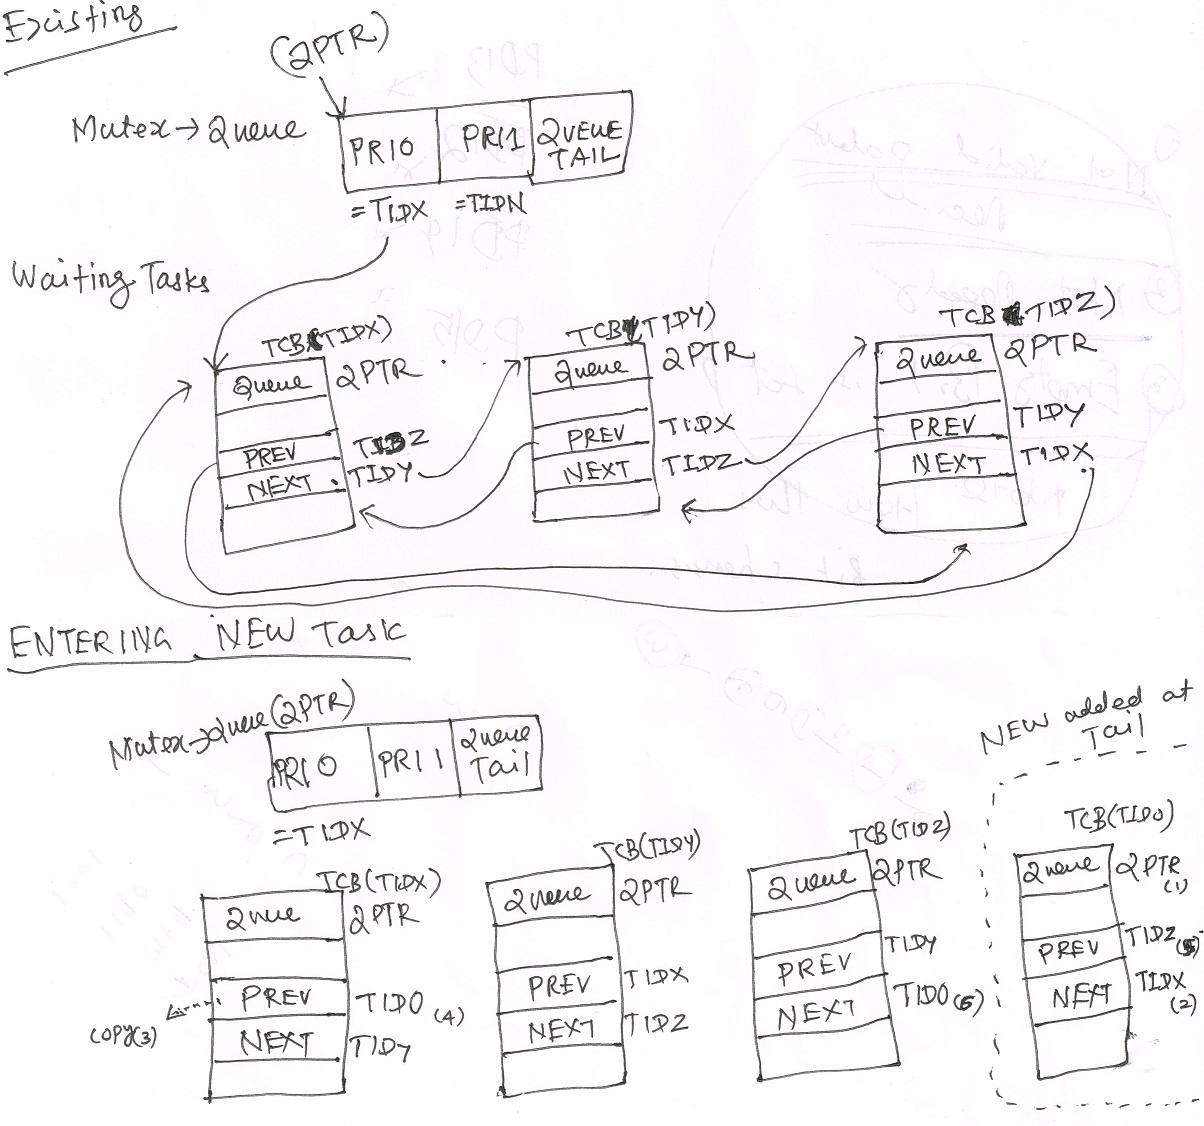 Existing
(QPTR)
Mutex→Queue
PRI0 PRI1 QUEUE TAIL
=TIDX =TIDN
Waiting Tasks
TCB(TIDX) TCB(TIDY) TCB(TIDZ)
Queue QPTR Queue QPTR Queue QPTR
PREV TIDZ PREV TIDX PREV TIDY
NEXT TIDY NEXT TIDZ NEXT TIDX
ENTERING NEW Task
Mutex→Queue(QPTR)
PRI0 PRI1 Queue Tail
=TIDX
NEW added at
Tail
TCB(TIDX) TCB(TIDY) TCB(TIDZ) TCB(TID0)
Queue QPTR Queue QPTR Queue QPTR Queue QPTR (1)
PREV TID0 (4) PREV TIDX PREV TIDY PREV TIDZ (5)
COPY(3)
NEXT TIDY NEXT TIDZ NEXT TID0 (6) NEXT TIDX (2)